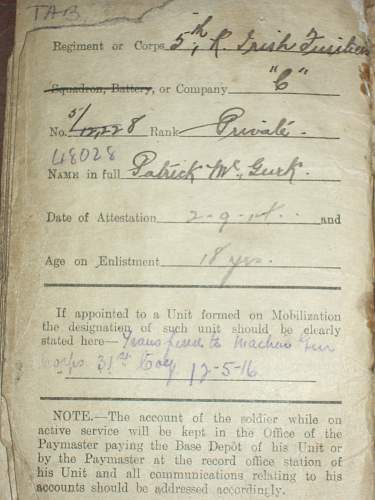 TAB
Regiment or Corps 5th, R. Irish Fusiliers
Squadron, Battery, or Company "C"
5/
No. 12,228 Rank Private.
48028
NAME in full Patrick McGurk.
Date of Attestation 2-9-14. and
Age on Enlistment 18 yrs.
If appointed to a Unit formed on Mobilization
the designation of such unit should be clearly
stated here— Transferred to Machine Gun
Corps 31st Coy 12-5-16
NOTE.—The account of the soldier while on
active service will be kept in the Office of the
Paymaster paying the Base Depôt of his Unit or
by the Paymaster at the record office station of
his Unit and all communications relating to his
accounts should be addressed accordingly.